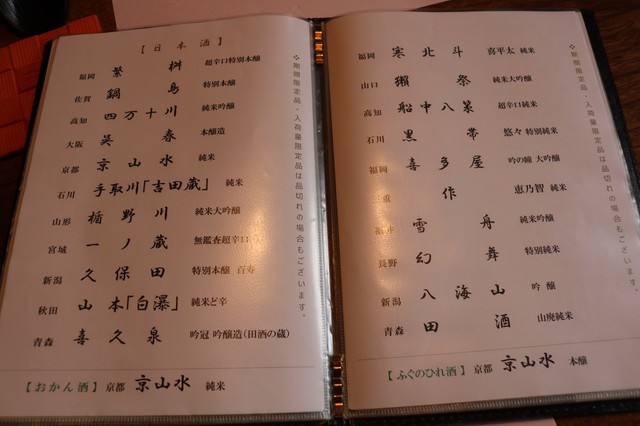 【日本酒】
福岡 繁桝 超辛口特別本醸
佐賀 鍋島 特別本醸
高知 四万十川 純米吟醸
大阪 呉春 本醸造
京都 京山水 純米
石川 手取川「吉田蔵」 純米
山形 楯野川 純米大吟醸
宮城 一ノ蔵 無鑑査超辛口
新潟 久保田 特別本醸 百寿
秋田 山本「白瀑」 純米ど辛
青森 喜久泉 吟冠 吟醸造(田酒の蔵)
【おかん酒】 京都 京山水 純米
※期間限定品・入荷量限定品は品切れの場合もございます。
福岡 寒北斗 喜平太 純米
山口 獺祭 純米大吟醸
高知 船中八策 超辛口純米
石川 黒帯 悠々 特別純米
福岡 喜多屋 吟の瞳 大吟醸
作 恵乃智 純米
雪舟 純米吟醸
長野 幻舞 特別純米
新潟 八海山 吟醸
青森 田酒 山廃純米
【ふぐのひれ酒】 京都 京山水 本醸
※期間限定品・入荷量限定品は品切れの場合もございます。